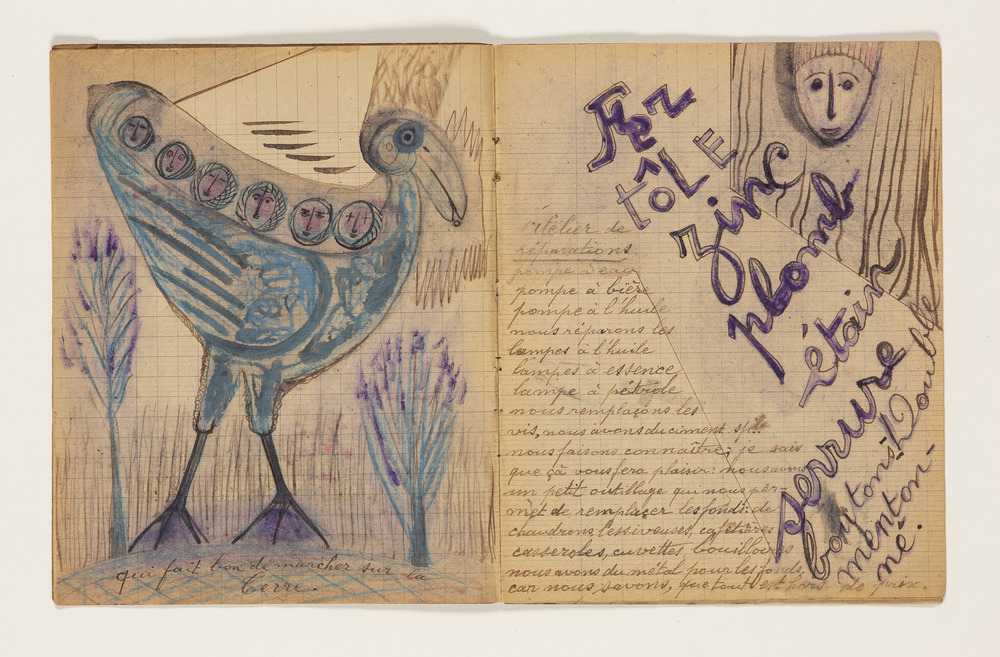 qui fait bon de marcher sur la
Terre.
Fer
tôLE
zinc
plomb
étain
serrure
Double
boutons
menton-
né.
Atelier de
réparations.
pompe à eau
pompe à bière
pompe à l'huile
nous réparons les
lampes à l'huile
lampes à essence
lampe à pétrole
nous remplaçons les
vis, nous avons du ciment
nous faisons connaître, je sais
que çà vous fera plaisir: nous avons
un petit outillage qui nous per-
met de remplacer les fonds: de
chaudrons, lessiveuses, cafetières
casseroles, cuvettes bouilloires
nous avons du métal pour les fonds,
car nous, savons, que tout est hors de prix.